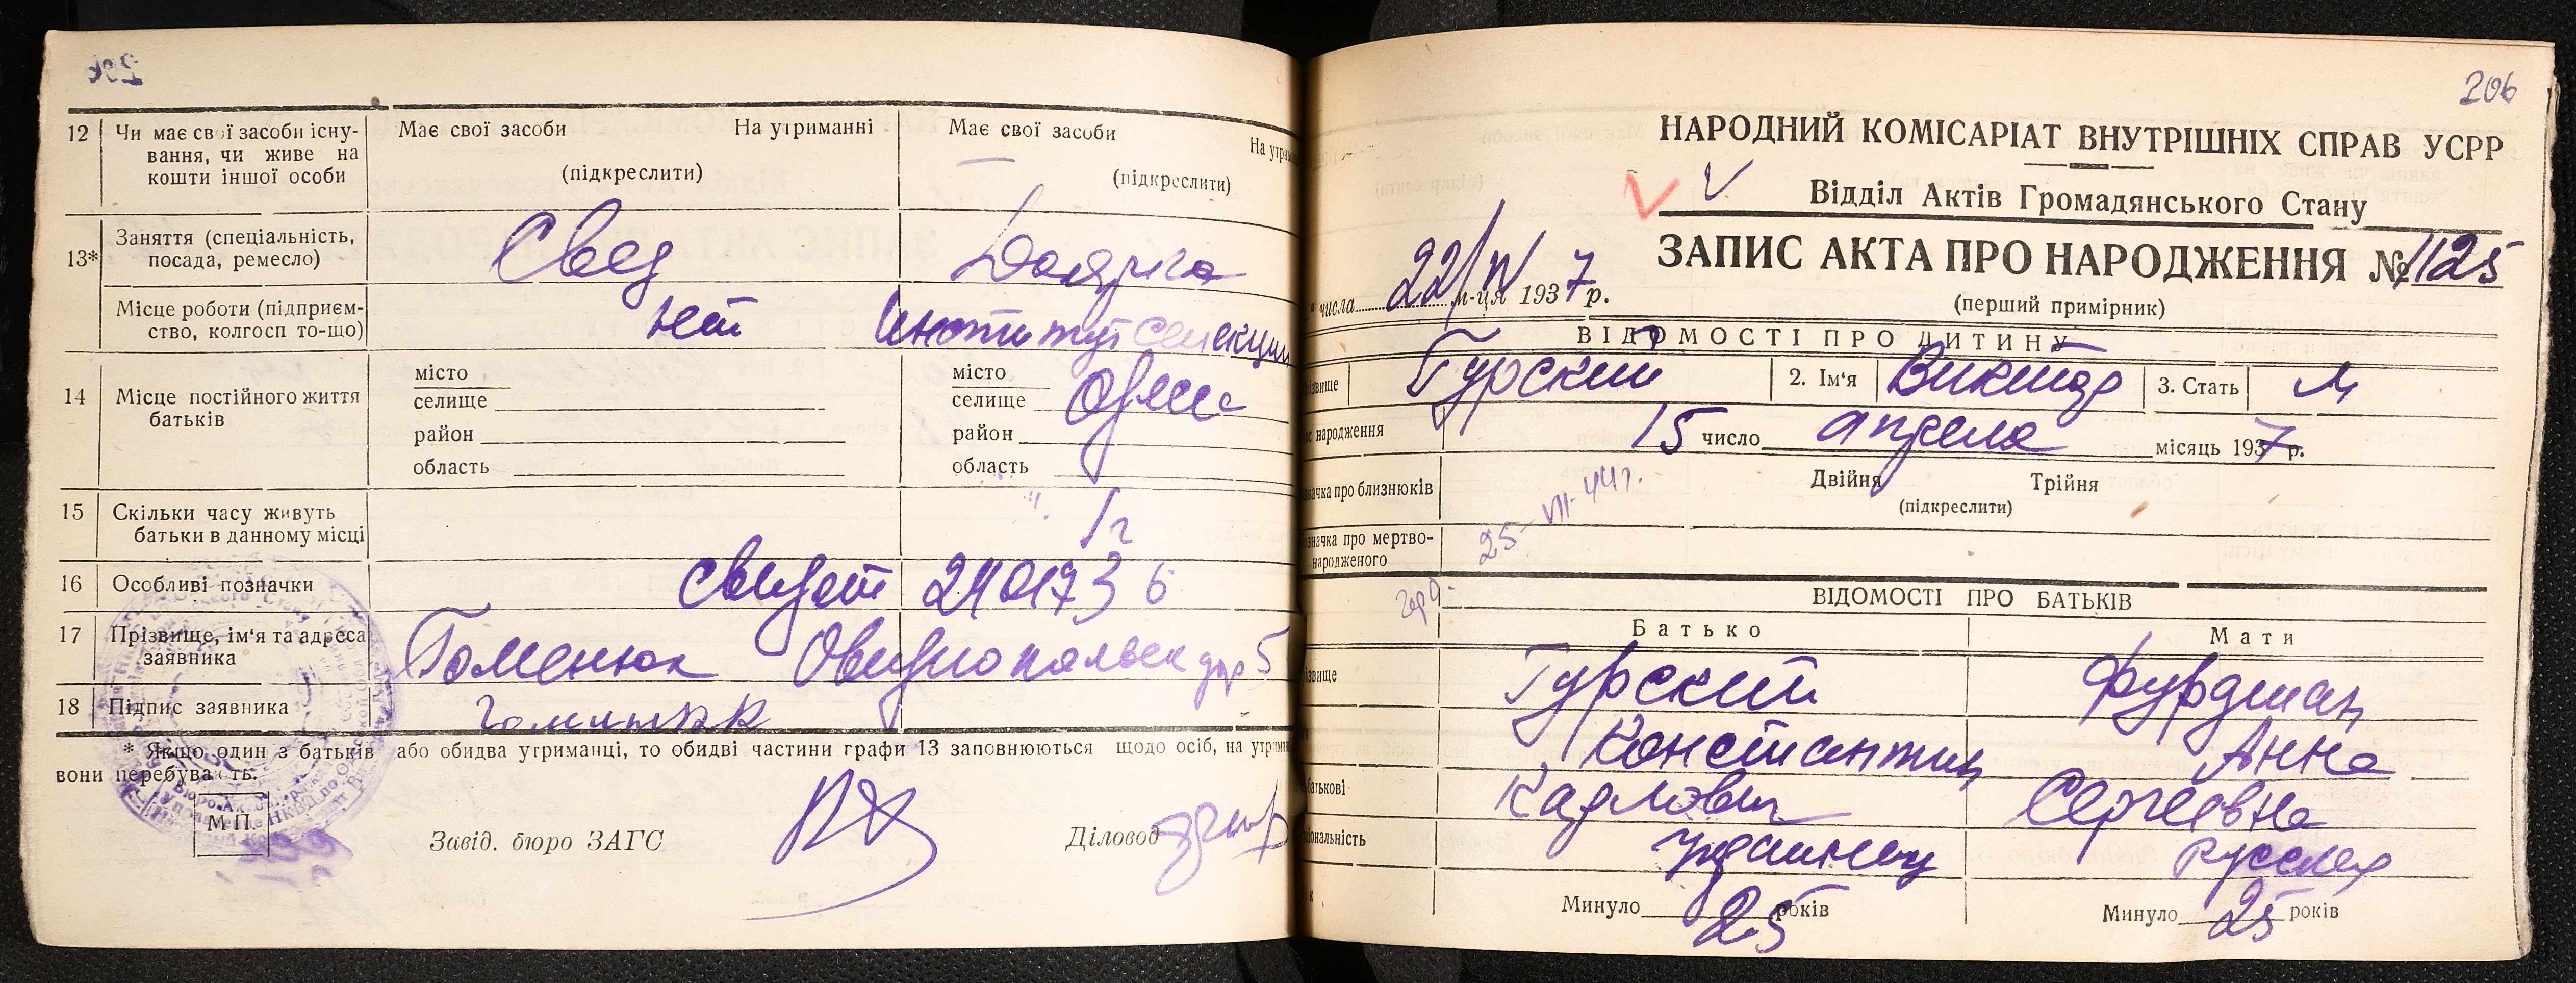 12 Чи має свої засоби існу-
вання, чи живе на
кошти іншої особи
Має свої засоби На утриманні
(підкреслити)
Має свої засоби
(підкреслити)
13* Заняття (спеціальність,
посада, ремесло)
Доярка
Місце роботи (підприєм-
ство, колгосп то-що)
нет
Институт селекции
14 Місце постійного життя
батьків
місто
селище
район
область
місто
селище
район
область
Одесс
15 Скільки часу живуть
батьки в данному місці
1г
16 Особливі позначки
17 Прізвище, ім'я та адреса
заявника
Гоменюк Овидиопольск дор 5
18 Підпис заявника
* Якщо один з батьків або обидва утриманці, то обидві частини графи 13 заповнюються щодо осіб, на
вони перебувають.
М П
Завід. бюро ЗАГС
Діловод
206
НАРОДНИЙ КОМІСАРІАТ ВНУТРІШНІХ СПРАВ УСРР
Відділ Актів Громадянського Стану
ЗАПИС АКТА ПРО НАРОДЖЕННЯ № 1125
числа 22/IV м-ця 1937 р.
(перший примірник)
ВІДОМОСТІ ПРО ДИТИНУ
Гурский
2. Ім'я Виктор
3. Стать М
народження 15 число апреля місяць 1937 р.
про близнюків
Двійня Трійня
(підкреслити)
про мертво-
народженого
25-VII-44г.
ВІДОМОСТІ ПРО БАТЬКІВ
Батько Мати
Гурский
Фурдман
Константин
Анна
Карлович
Сергеевна
украинец
русская
Минуло 25 років
Минуло 25 років